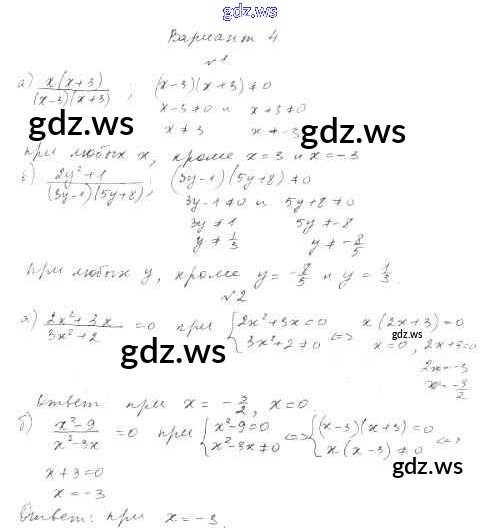 gdz.ws
Вариант 4
№1
а) x(x+3)/((x-3)(x+3)) ; (x-3)(x+3)≠0
x-3≠0 и x+3≠0
gdz.ws gdz.ws
x≠3 x≠-3
при любых x, кроме x=3 и x=-3
б) (2y²+1)/((3y-1)(5y+8)) ; (3y-1)(5y+8)≠0
3y-1≠0 и 5y+8≠0
3y≠1 5y≠-8
y≠1/3 y≠-8/5
При любых y, кроме y=-8/5 и y=1/3.
№2
а) (2x²+3x)/(3x²+2) =0 при {2x²+3x=0 <=> x(2x+3)=0
3x²+2≠0 x=0, 2x+3=0
gdz.ws
2x=-3
x=-3/2
Ответ при x=-3/2, x=0.
б) (x²-9)/(x²-3x) =0 при {x²-9=0 <=> {(x-3)(x+3)=0 <=>
x²-3x≠0 x(x-3)≠0
gdz.ws
x+3=0
x=-3
Ответ: при x=-3.
gdz.ws